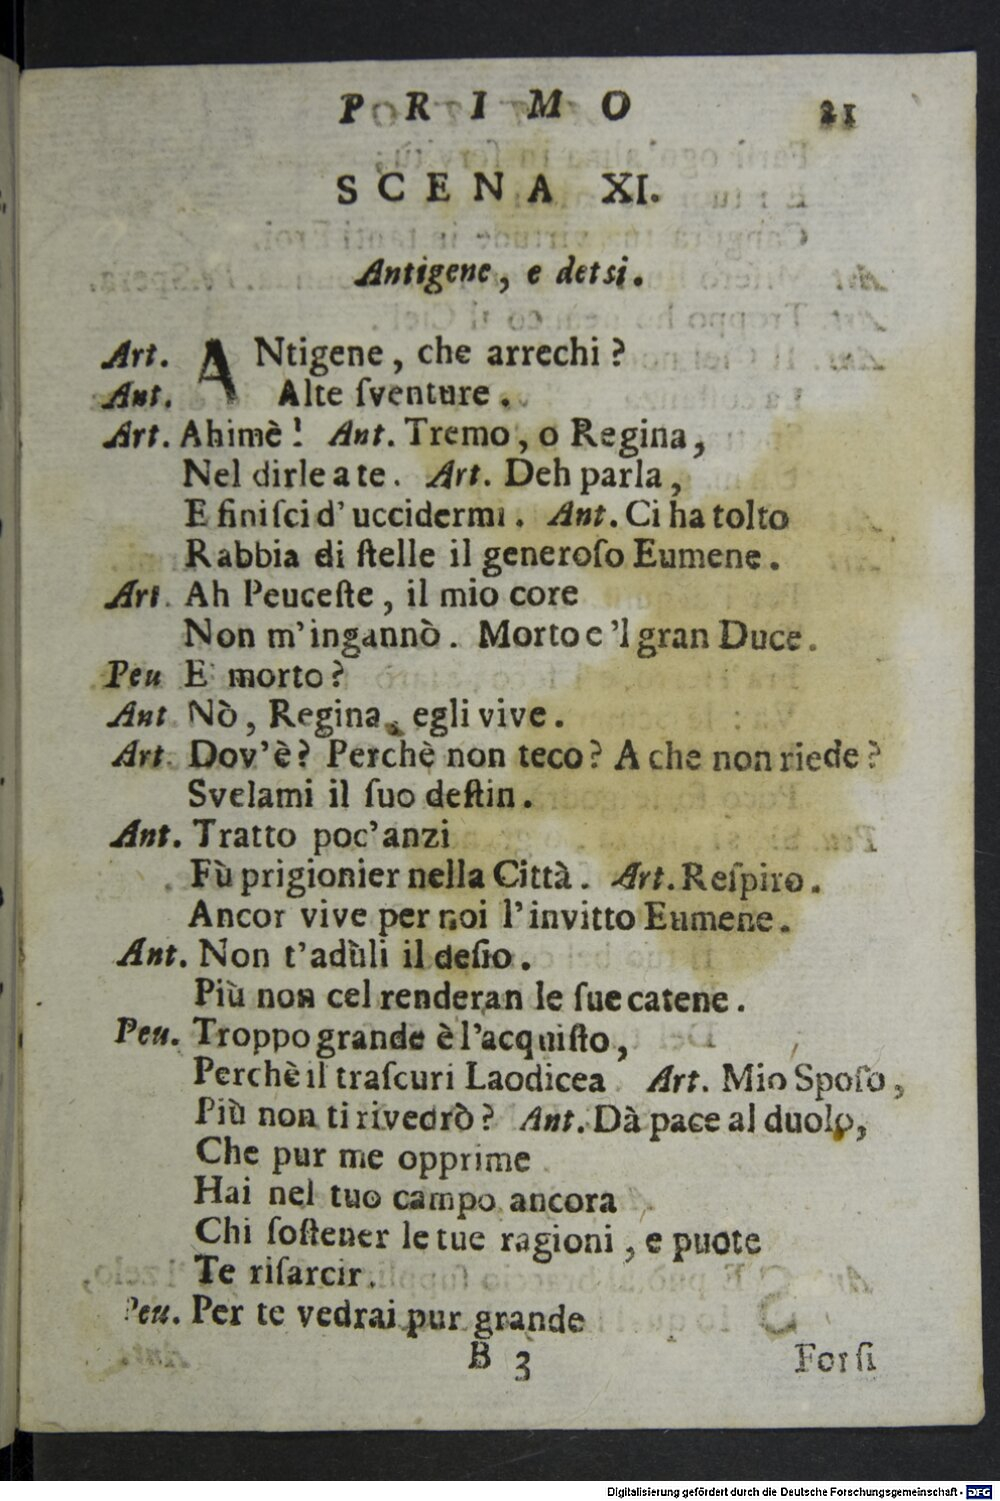 PRIMO 21
SCENA XI.
Antigene, e detsi.
Art. ANtigene, che arrechi?
Ant. Alte ſventure.
Art. Ahimè! Ant. Tremo, o Regina,
Nel dirle a te. Art. Deh parla,
E finiſci d'uccidermi. Ant. Ci ha tolto
Rabbia di ſtelle il generoſo Eumene.
Art. Ah Peuceſte, il mio core
Non m'ingannò. Morto e 'l gran Duce.
Peu E' morto?
Ant Nò, Regina, egli vive.
Art. Dov'è? Perchè non teco? A che non riede?
Svelami il ſuo deſtin.
Ant. Tratto poc'anzi
Fù prigionier nella Città. Art. Reſpiro.
Ancor vive per noi l'invitto Eumene.
Ant. Non t'adùli il deſio.
Più non cel renderan le ſue catene.
Peu. Troppo grande è l'acquiſto,
Perchè il traſcuri Laodicea Art. Mio Spoſo,
Più non ti rivedrò? Ant. Dà pace al duolo,
Che pur me opprime
Hai nel tuo campo ancora
Chi ſoſtener le tue ragioni, e puote
Te riſarcir.
Peu. Per te vedrai pur grande
B 3 Forſi
Digitalisierung gefördert durch die Deutsche Forschungsgemeinschaft - DFG